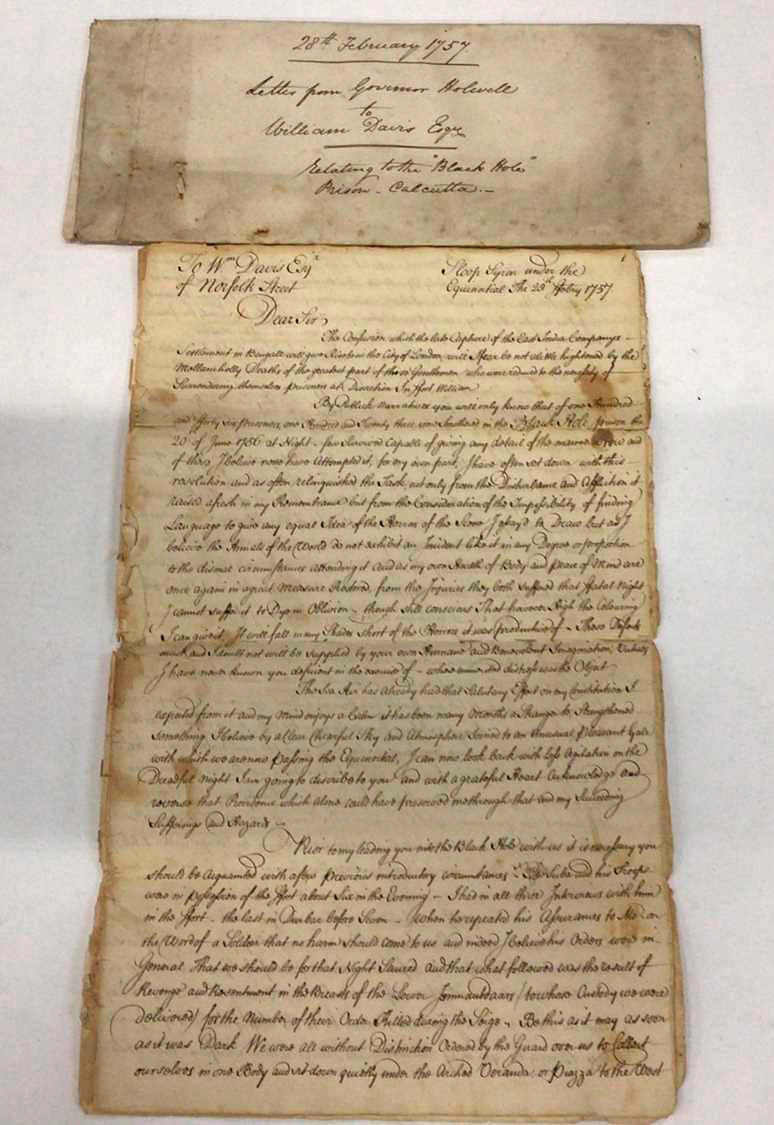 28th February 1757.
Letter from Governor Holwell
to
William Davis Esqre
Relating to the "Black Hole"
Prison - Calcutta. -
To Wm Davis Esqr
of Norfolk Street
Sloop Syren under the
Equinoctial The 28th 1757
Dear Sir,
The Confusion which the late Capture of the East India Companys
Settlement in Bengall will give Rise to in the City of London, will I fear be not a little heightened by the
Mellancholly Deaths of the greatest part of those Gentlemen who were reduced to the necessity of
Surrendering themselves prisoners at Discretion In Fort William
By Publick Narratives you will only know that of one Hundred
and fforty Six prisoners, one Hundred and Twenty three were Smothered in the Black Hole prison the
20 of June 1756 at Night - few Survived Capable of giving any detail of the manner and
of these I believe none have Attempted it, for my own part, I have often set down with this
resolution and as often relinquished the Task not only from the Disturbance and Affliction it
raised afresh in my Remembrance but from the Consideration of the Impossibility of finding
Language to give any equal Idea of the Horrors of the Scene I Essay'd to Draw but as I
believe the Annals of the World do not exhibit an Incident like it in any Degree or proportion
to the dismal circumstances attending it And as my own Health of Body and peace of Mind are
once again in a great Measure Restored, from the Injuries they both suffered that ffatal Night
I cannot suffer it to Dye in Oblivion - though still conscious That however High the Colouring
I can give it, It will fall in many Shades Short of the Horrors it was productive of - These Defects
must and I doubt not will be supplied by your own Humane and Benevolent Imagination,
I have never known you deficient in the exercise of - where unmerited distress was the Object
The Sea Air has already had that Salutary Effect on my Constitution I
expected from it and my Mind enjoys a Calm it has been many Months a Stranger to, Strengthened
Something I believe by a Clear Chearful Sky and Atmosphere Joined to an Unusual pleasant Gale
with which we are now passing the Equinoctial, I can now look back with Less Agitation on the
Dreadful night I am going to describe to you and with a grateful Heart Acknowledge and
revere that Providence which alone could have preserved me through that and my Succeeding
Sufferings and Hazards -
Prior to my leading you into the Black Hole with us it is necessary you
should be Acquainted with a few previous introductory circumstances Suba and his Troops
were in possession of the ffort about Six in the Evening - I had in all three Interviews with him
in the ffort - the last in Durbar before Seven - When he repeated his Assurances to Me on
the Word of a Soldier that no harm should come to us and indeed I believe his Orders were in
General That we should be for that Night Secured and that what followed was the result of
Revenge and Resentment in the Breasts of the Lower Jemmautdaars / to whose Custody we were
delivered / for the Number of their Order Killed during the Seige - Be this as it may as soon
as it was Dark We were all without Distinction Ordered by the Guard over us to Collect
ourselves in one Body and set down quietly under the Arched Veranda, or Piazza to the West